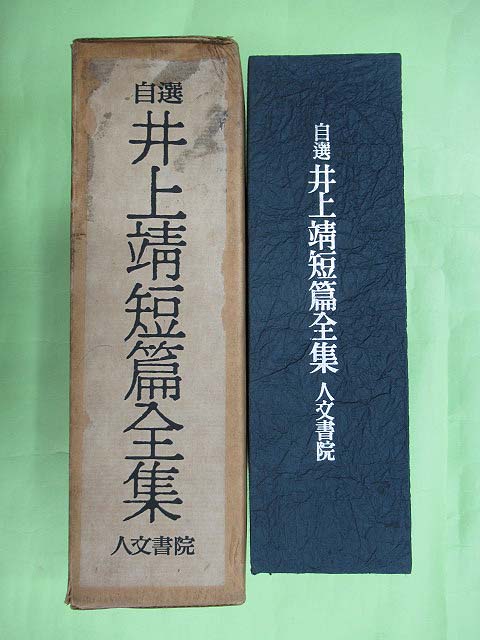 自選
井上靖短篇全集
人文書院
自選
井上靖短篇全集
人文書院